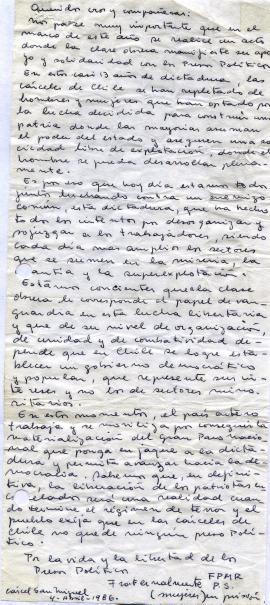 Queridos cros y compañeras:
Nos parece muy importante que en el
marco de este año se realice un acto
donde la clase obrera manifieste su apo
yo y solidaridad con los Presos Políticos
En estos casi 13 años de dictadura, las
cárceles de Chile se han repletado de
hombres y mujeres que han optado por
la lucha decidida para construir una
patria donde las mayorías asuman
el poder del estado y aseguren una so
ciedad libre de explotación, donde el
hombre se pueda desarrollar plena-
mente.
Es por eso que hoy día estamos todos
juntos luchando contra un enemigo
común, esta dictadura, que ha hecho
todos los intentos por desorganizar y
sojuzgar a los trabajadores, siendo
cada día mas amplios los sectores
que se sumen en la miseria, la
cesantía y la superexplotación.
Estamos concientes que a la clase
obrera le corresponde el papel de van-
guardia en esta lucha libertaria
y que de su nivel de organización,
de unidad y de combatividad de-
pende que en Chile se logre esta-
blecer un gobierno democrático
y popular, que represente sus in-
tereses y no los de sectores mino-
ritarios.
En estos momentos, el país entero
trabaja y se moviliza por conseguir la
materialización del Gran Paro Nacio-
nal que ponga en jaque a la dicta-
dura y permita avanzar hacia la de-
mocracia. Sabemos que, en defini-
tiva, la liberación de los patriotas en-
carcelados será una realidad cuan-
do termine el régimen de terror y el
pueblo exija que en las cárceles de
Chile no quede ningun preso Polí-
tico.
Por la vida y la libertad de los
Presos Políticos
Fraternalmente FPMR
P.S.
Cárcel San Miguel (mujeres) en prisión.
4-Abril-1986.